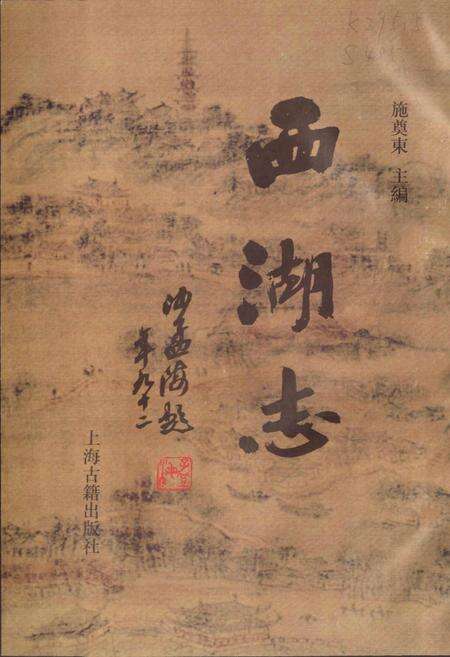 施奠東 主編
西湖志
沙孟海題
年九十二
上海古籍出版社